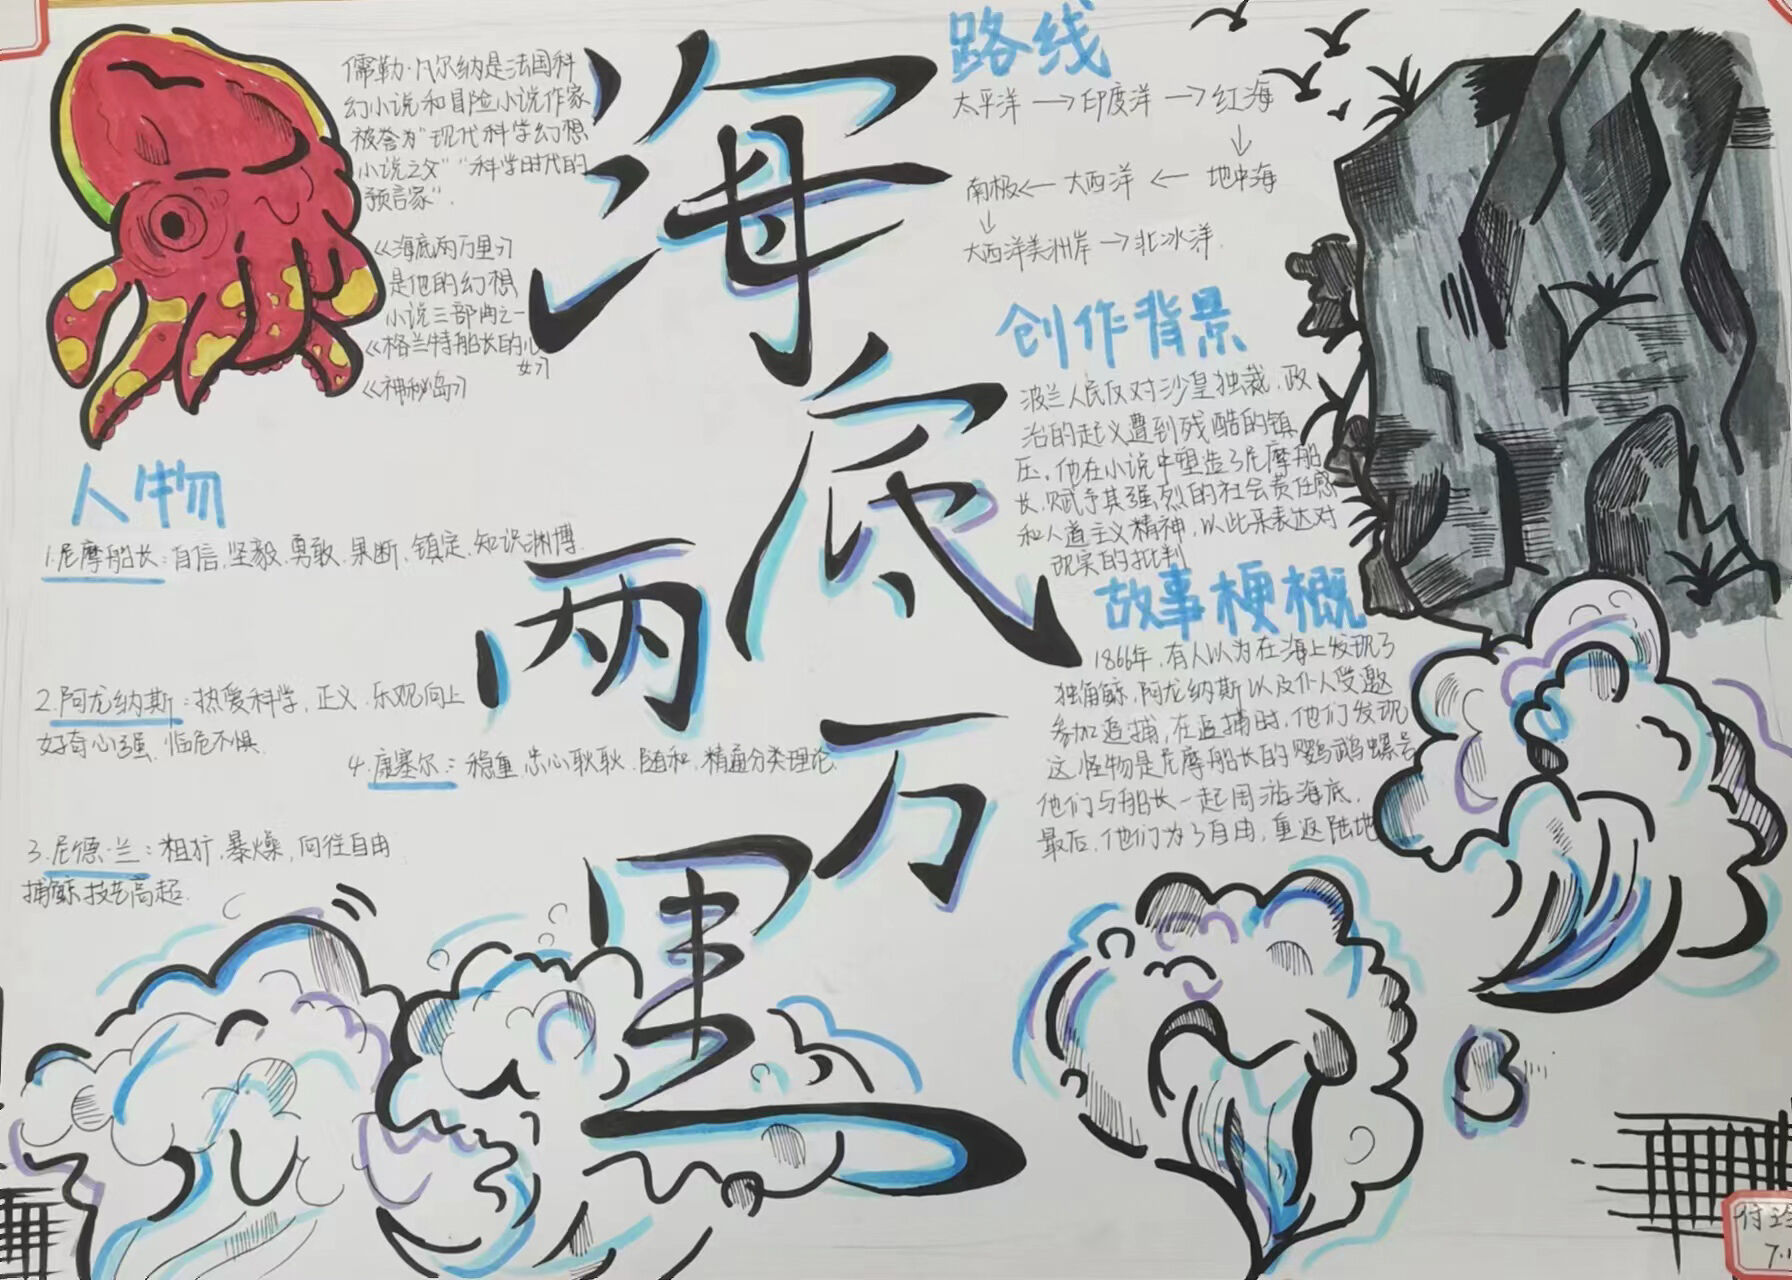 海底两万里
儒勒·凡尔纳是法国科
幻小说和冒险小说作家
被誉为“现代科学幻想
小说之父”“科学时代的
预言家”.
《海底两万里》
是他的幻想
小说三部曲之一
《格兰特船长的儿
女》
《神秘岛》
人物
1.尼摩船长:自信,坚毅,勇敢,果断,镇定,知识渊博.
2.阿龙纳斯:热爱科学,正义,乐观向上
好奇心强,临危不惧.
4.康塞尔:稳重,忠心耿耿,随和,精通分类理论.
3.尼德·兰:粗犷,暴燥,向往自由
捕鲸技艺高超.
路线
太平洋→印度洋→红海
↓
南极←大西洋←地中海
↓
大西洋美洲岸→北冰洋.
创作背景
波兰人民反对沙皇独裁,政
治的起义遭到残酷的镇
压,他在小说中塑造了尼摩船
长,赋予其强烈的社会责任感
和人道主义精神,以此来表达对
现实的批判
故事梗概
1866年,有人以为在海上发现了
独角鲸,阿龙纳斯以及仆人受邀
参加追捕,在追捕时,他们发现
这怪物是尼摩船长的鹦鹉螺号
他们与船长一起周游海底.
最后,他们为了自由,重返陆地
付
7.